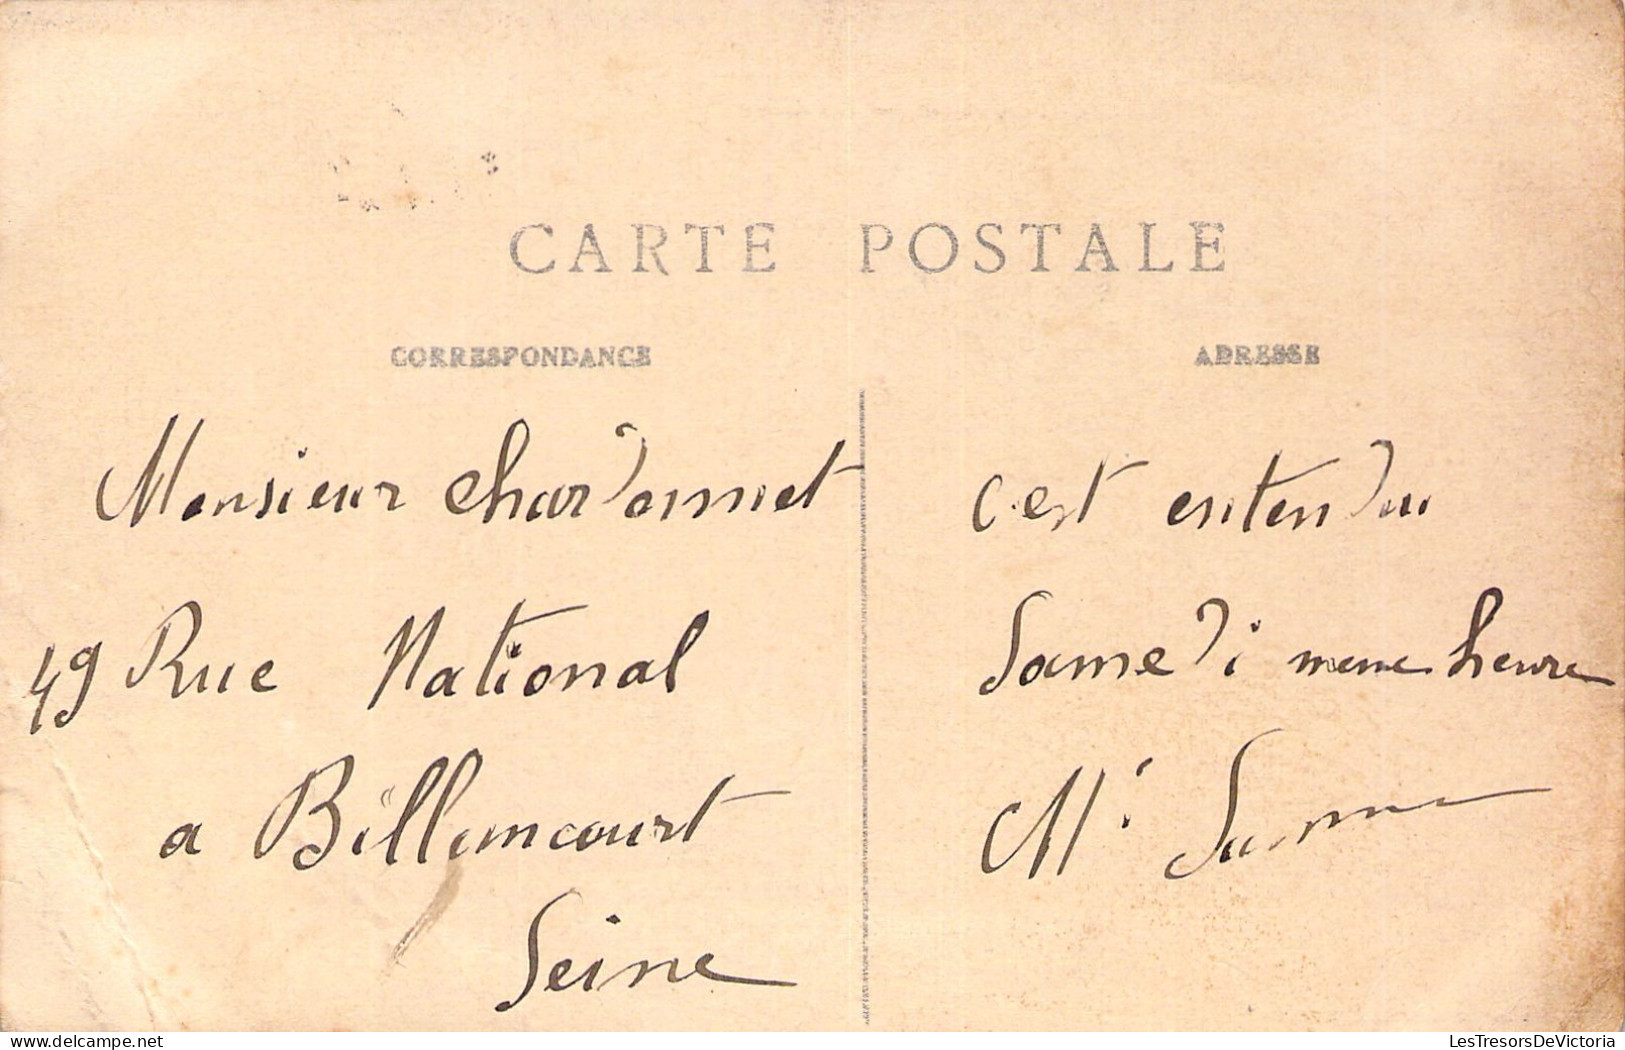 CARTE POSTALE
CORRESPONDANCE
Monsieur chardonnet
49 Rue National
a Billancourt
Seine
ADRESSE
c'est entendu
Samedi meme heure
delcampe.net
LesTresorsDeVictoria